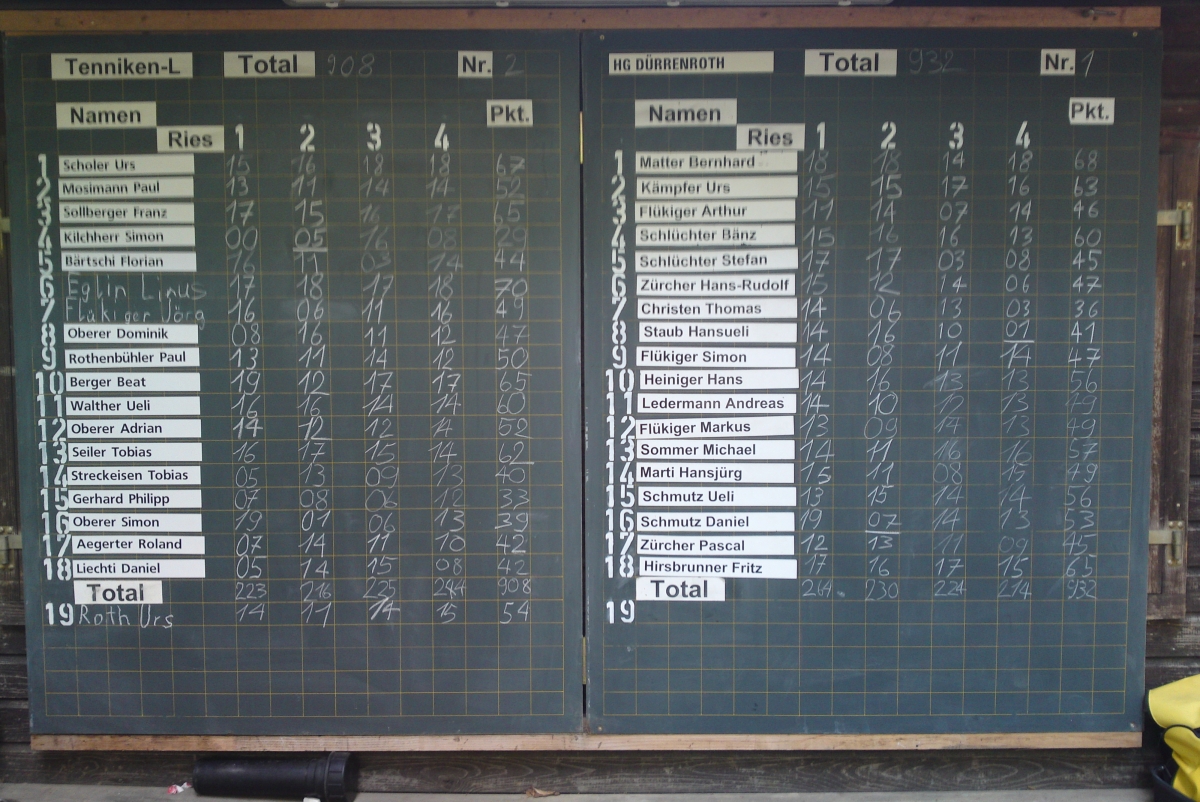 Tenniken-L Total 908 Nr. 2
Namen Pkt.
Ries 1 2 3 4
1 Scholer Urs 15 16 18 18 67
2 Mosimann Paul 13 11 14 14 52
3 Sollberger Franz 17 15 16 17 65
4 Kilchherr Simon 00 05 16 08 29
5 Bärtschi Florian 16 11 03 14 44
6 Eglin Linus 17 18 17 18 70
7 Flükiger Jörg 16 06 11 16 49
8 Oberer Dominik 08 16 11 12 47
9 Rothenbühler Paul 13 11 14 12 50
10 Berger Beat 19 12 17 17 65
11 Walther Ueli 16 16 14 14 60
12 Oberer Adrian 14 12 12 14 52
13 Seiler Tobias 16 17 15 14 62
14 Streckeisen Tobias 05 13 09 13 40
15 Gerhard Philipp 07 08 06 12 33
16 Oberer Simon 19 01 06 13 39
17 Aegerter Roland 07 14 11 10 42
18 Liechti Daniel 05 14 15 08 42
Total 223 216 225 244 908
19 Roth Urs 14 11 14 15 54
HG DÜRRENROTH Total 932 Nr. 1
Namen Pkt.
Ries 1 2 3 4
1 Matter Bernhard 18 18 14 18 68
2 Kämpfer Urs 15 15 17 16 63
3 Flükiger Arthur 11 14 07 14 46
4 Schlüchter Bänz 15 16 16 13 60
5 Schlüchter Stefan 17 17 03 08 45
6 Zürcher Hans-Rudolf 15 12 14 06 47
7 Christen Thomas 14 06 13 03 36
8 Staub Hansueli 14 16 10 01 41
9 Flükiger Simon 14 08 11 14 47
10 Heiniger Hans 14 16 13 13 56
11 Ledermann Andreas 14 10 12 13 49
12 Flükiger Markus 13 09 14 13 49
13 Sommer Michael 14 11 16 16 57
14 Marti Hansjürg 15 11 08 15 49
15 Schmutz Ueli 13 15 14 14 56
16 Schmutz Daniel 19 07 14 13 53
17 Zürcher Pascal 12 13 11 09 45
18 Hirsbrunner Fritz 17 16 17 15 65
Total 264 230 224 214 932
19